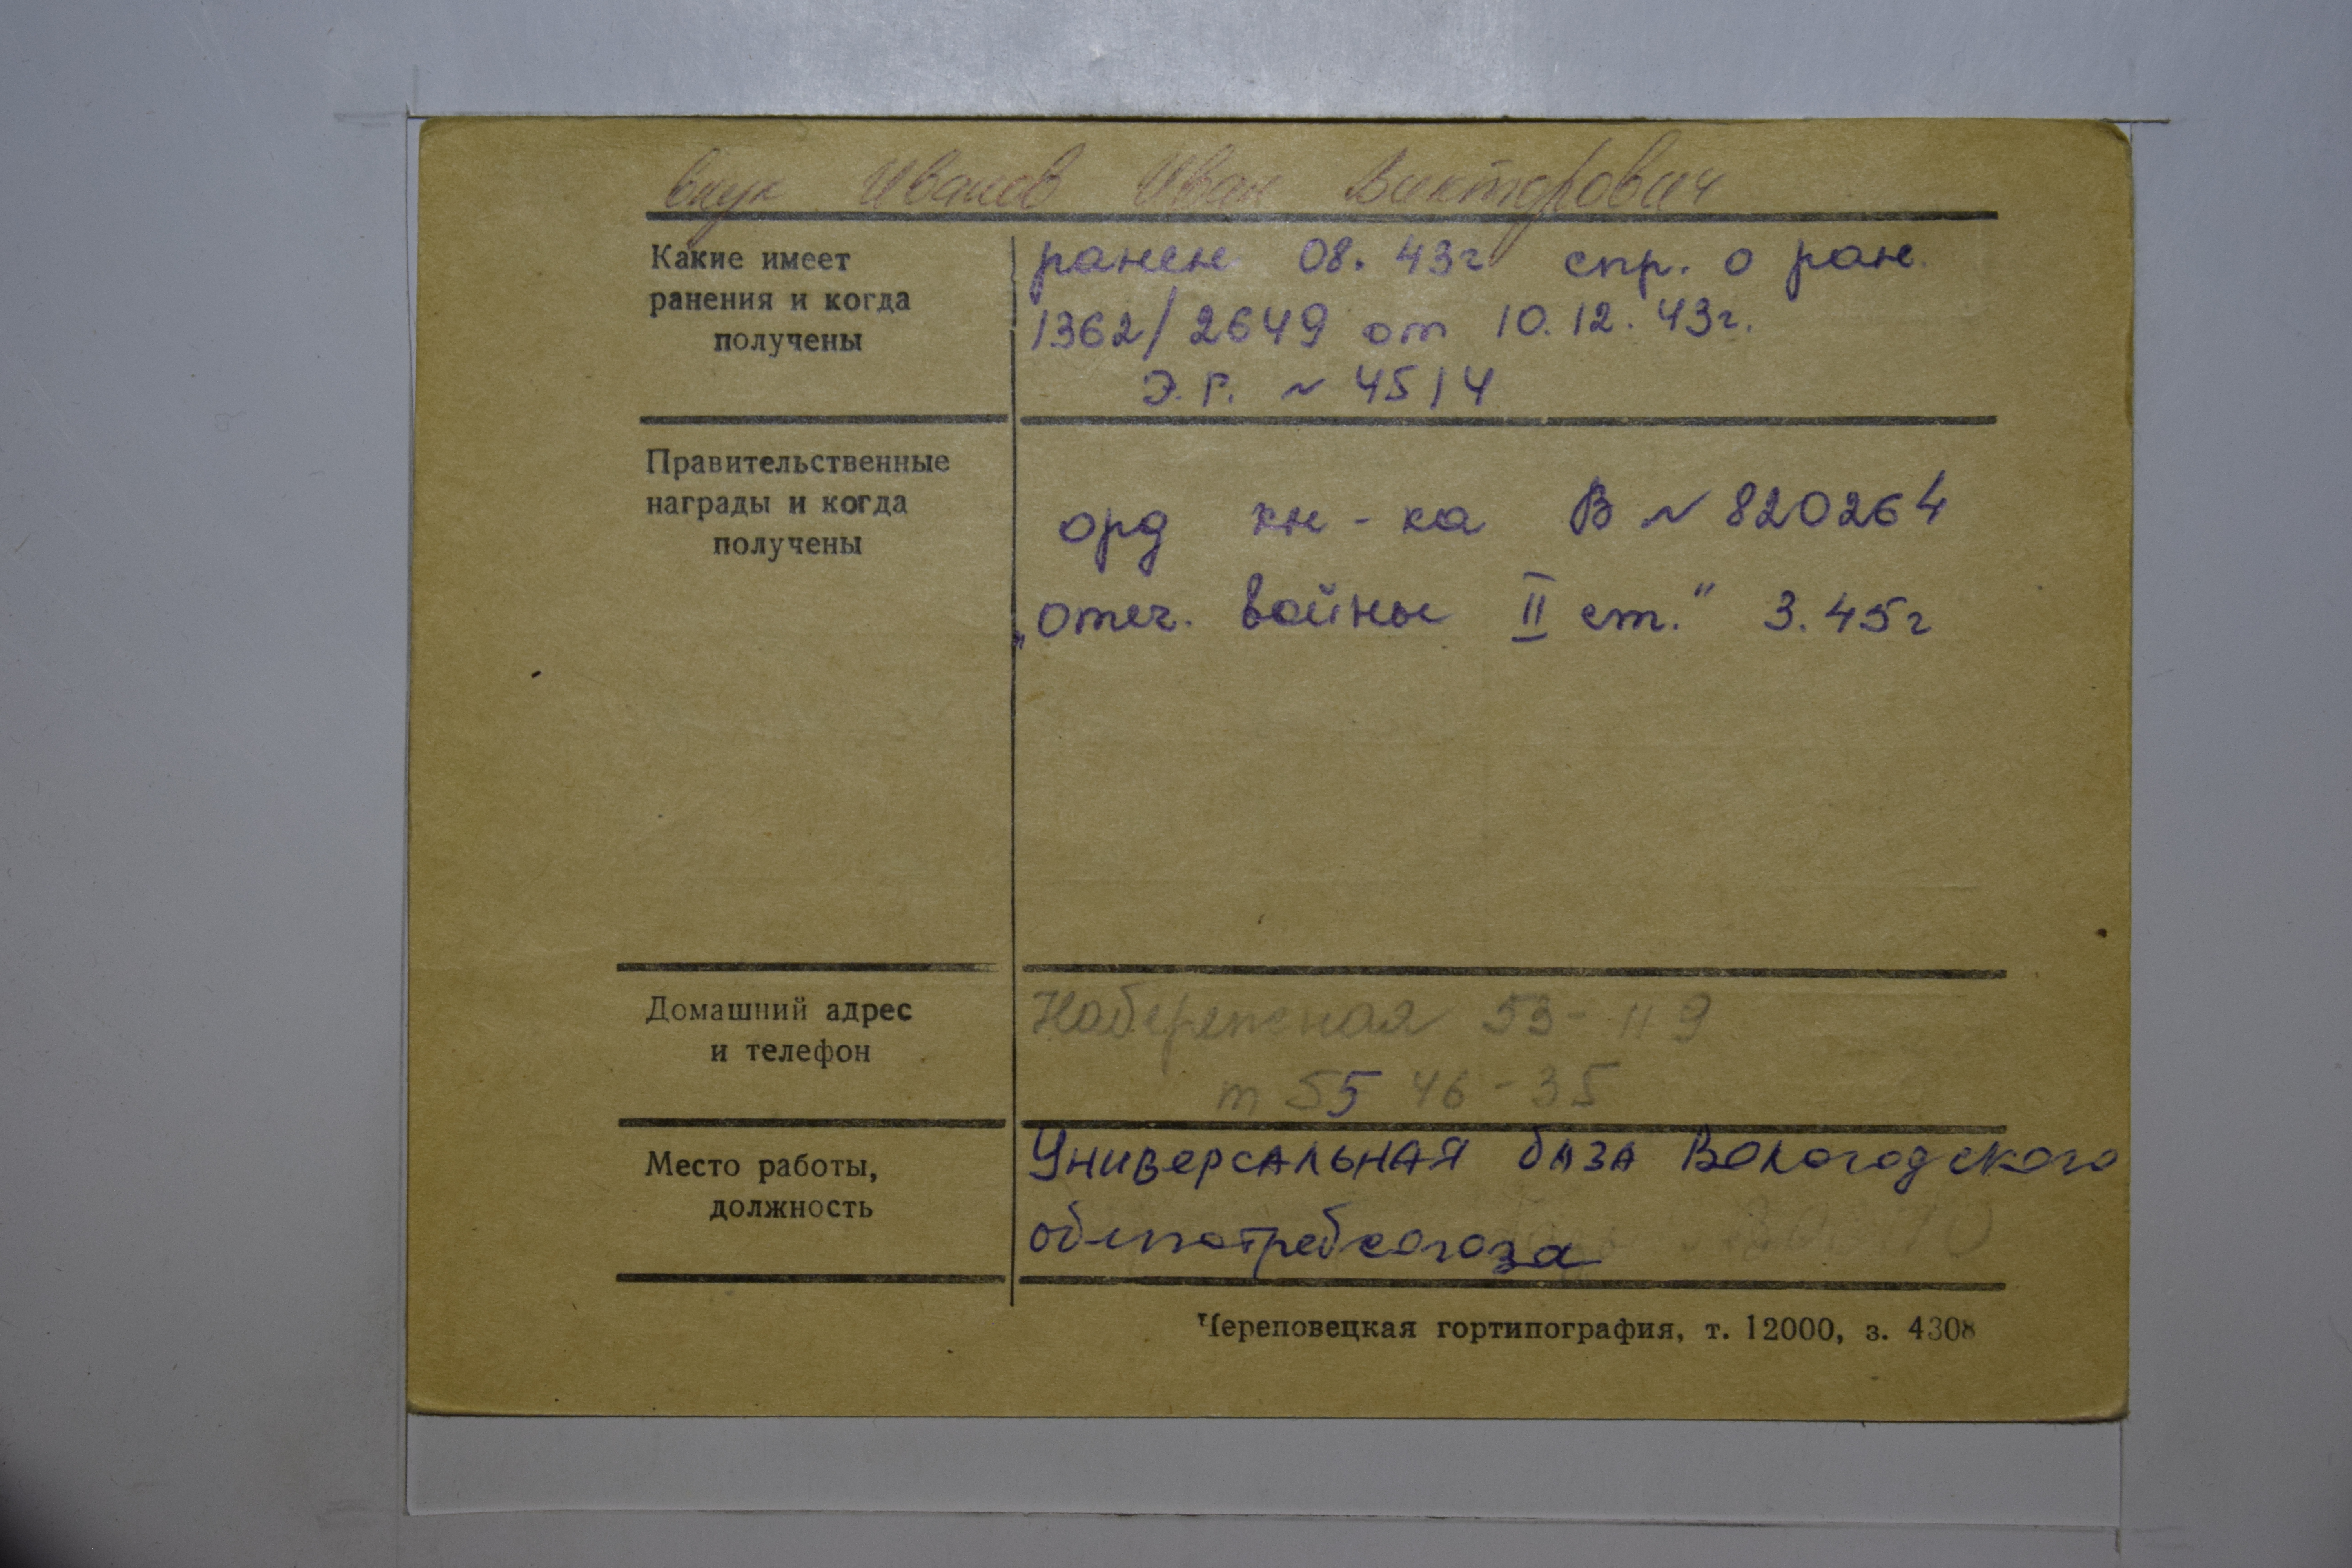 внук Иванов Иван Викторович
Какие имеет
ранения и когда
получены
ранен 08. 43г спр. о ран.
1362/2649 от 10.12.43г.
Э.Г. ~ 4514
Правительственные
награды и когда
получены
орд кн-ка В ~ 820264
„Отеч. войны II ст." 3.45г
Домашний адрес
и телефон
Набережная 53-119
т 55 46-35
Место работы,
должность
Универсальная база Вологодского
облпотребсоюза
Череповецкая гортипография, т. 12000, з. 4308